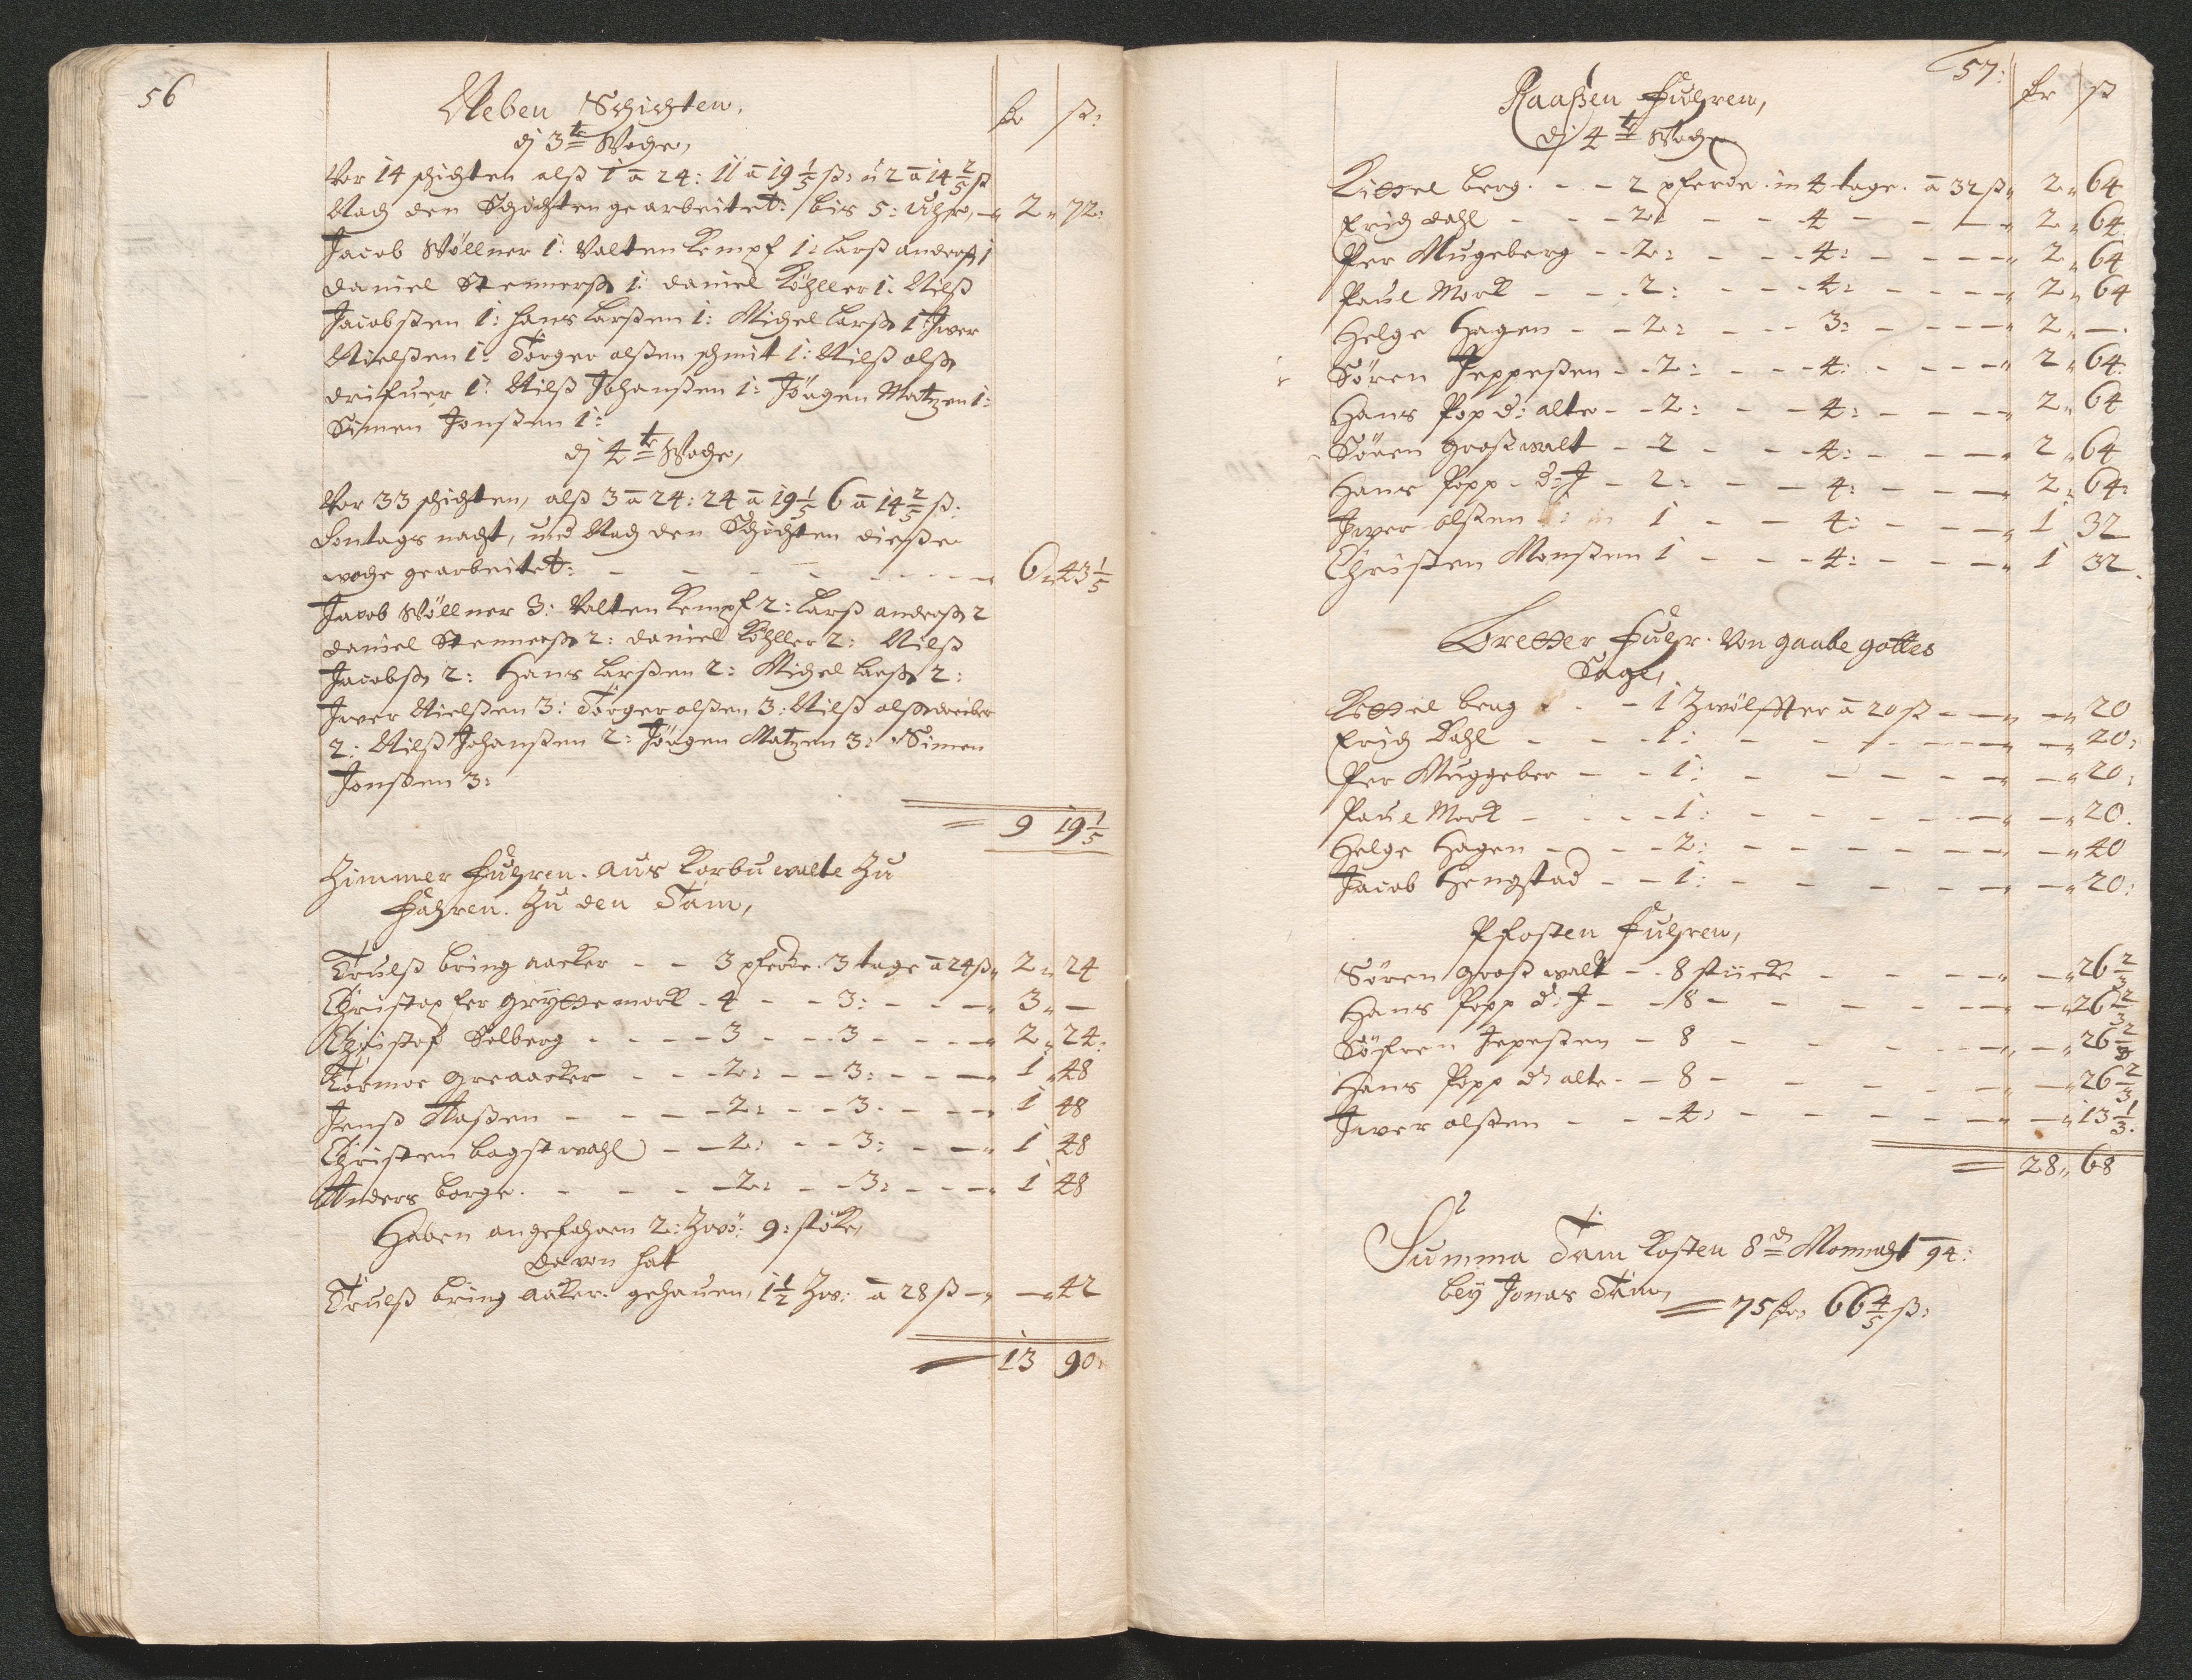 56
Neben Schichten,
dj 3te Woche,
kr ß:
Vor 14 schichten alß 1 a 24: 11 a 19 1/5 ß: u 2 a 14 2/5 ß
Nach den Schichten gearbeitet: bis 5: Uhr, 2 72:
Jacob Wöllner 1: Valten Kempf 1: Larß anderß 1
Daniel Stennerß 1: Daniel Köhller 1: Nilß
Jacobßen 1: Hans Larßen 1: Michel Larß 1: Iver
Nielßen 1: Törger olßen schmit 1: Nilß olß
drifuer 1: Nilß Johanßen 1: Jörgen Matzen 1:
Simen Jonßen 1:
dj 4te Woche,
Vor 33 schichten, alß 3 a 24: 24 a 19 1/5 6 a 14 2/5 ß:
Sontags nacht, und Nach den Schichten dieße
woche gearbeitet: - - - - - 6 43 1/5
Jacob Wöllner 3: Valten Kempf 2: Larß anderß 2
Daniel Stennerß 2: Daniel Köhller 2: Nilß
Jacobß 2: Hans Larßen 2: Michel Larß 2:
Iver Nielßen 3: Törger olßen 3: Nilß olß
2: Nilß Johanßen 2: Jörgen Matzen 3: Simen
Jonßen 3:
= 9 19 1/5
Zimmer Fuhren. aus Korbu walte Zu
Fahren. Zu den Tam,
Trulß bring aacker - - 3 pferde. 3 tage a 24 ß 2 24
Christopfer Gryttemork - 4 - - 3: - - - 3 -
Christof Selberg - - - - 3 - - 3 - - - 2 24:
Tormoe Greaacker - - - 2: - - 3: - - - 1 48
Jenß Aaßen - - - - 2: - - 3 - - - 1 48
Christen bagstwahl - - 2: - - 3: - - - 1 48
Anders borge. - - - - 2: - - 3: - - - 1 48
Haben angefahren 2: Zwö: 9: stöke,
davon hat
Trulß bring aaker. gehauen, 1 1/2 Zwö: a 28 ß - - 42
13 90:
57:
kr ß
Raaßen Fuhren,
dj 4te Woche
Kittel berg. - - 2 pferde. in 4 tage. a 32 ß 2 64
Erich dahl - - - 2: - - 4 - - - 2 64
Per Mugeberg - - 2: - - - 4: - - - 2 64
Paul Mork - - - 2: - - - 4: - - - 2 64
Helge Hagen - - 2: - - - 3: - - - 2 -
Sören Jeppeßen - - 2: - - - 4: - - - 2 64
Hans Pop d: alte - - 2: - - 4: - - - 2 64
Sören großwalt - - 2 - - - 4: - - - 2 64
Hans Popp - d: J - 2: - - - 4: - - - 2 64:
Iver olßen 1 - - 4: - - - 1 32
Christen Monßen 1 - - - 4: - - - 1 32
Bretter Fuhr. Von gaabe gottes
Sage,
Kittel berg - - 1 Zwölffter a 20 ß - - - 20
Erich Dahl - - - 1: - - - - 20:
Per Muggeber - - 1: - - - - 20:
Paul Mork - - - - 1: - - - - 20.
Helge Hagen - - - 2: - - - - 40
Jacob Hengstad - - 1: - - - - 20:
Pfosten Fuhren,
Sören großwalt - - 8 stücke - - - - 26 2/3
Hans Popp d: J - - 8 - - - - 26 2/3
Söfren Jepeßen - 8 - - - - 26 2/3
Hans Popp d: alte - - 8 - - - - 26 2/3
Iver olßen - - - 4: - - - - 13 1/3
= 28 68
Summa Tam kosten 8d Monnaht 94:
bey Jonas Tam,
= 75 kr, 66 4/5 ß: